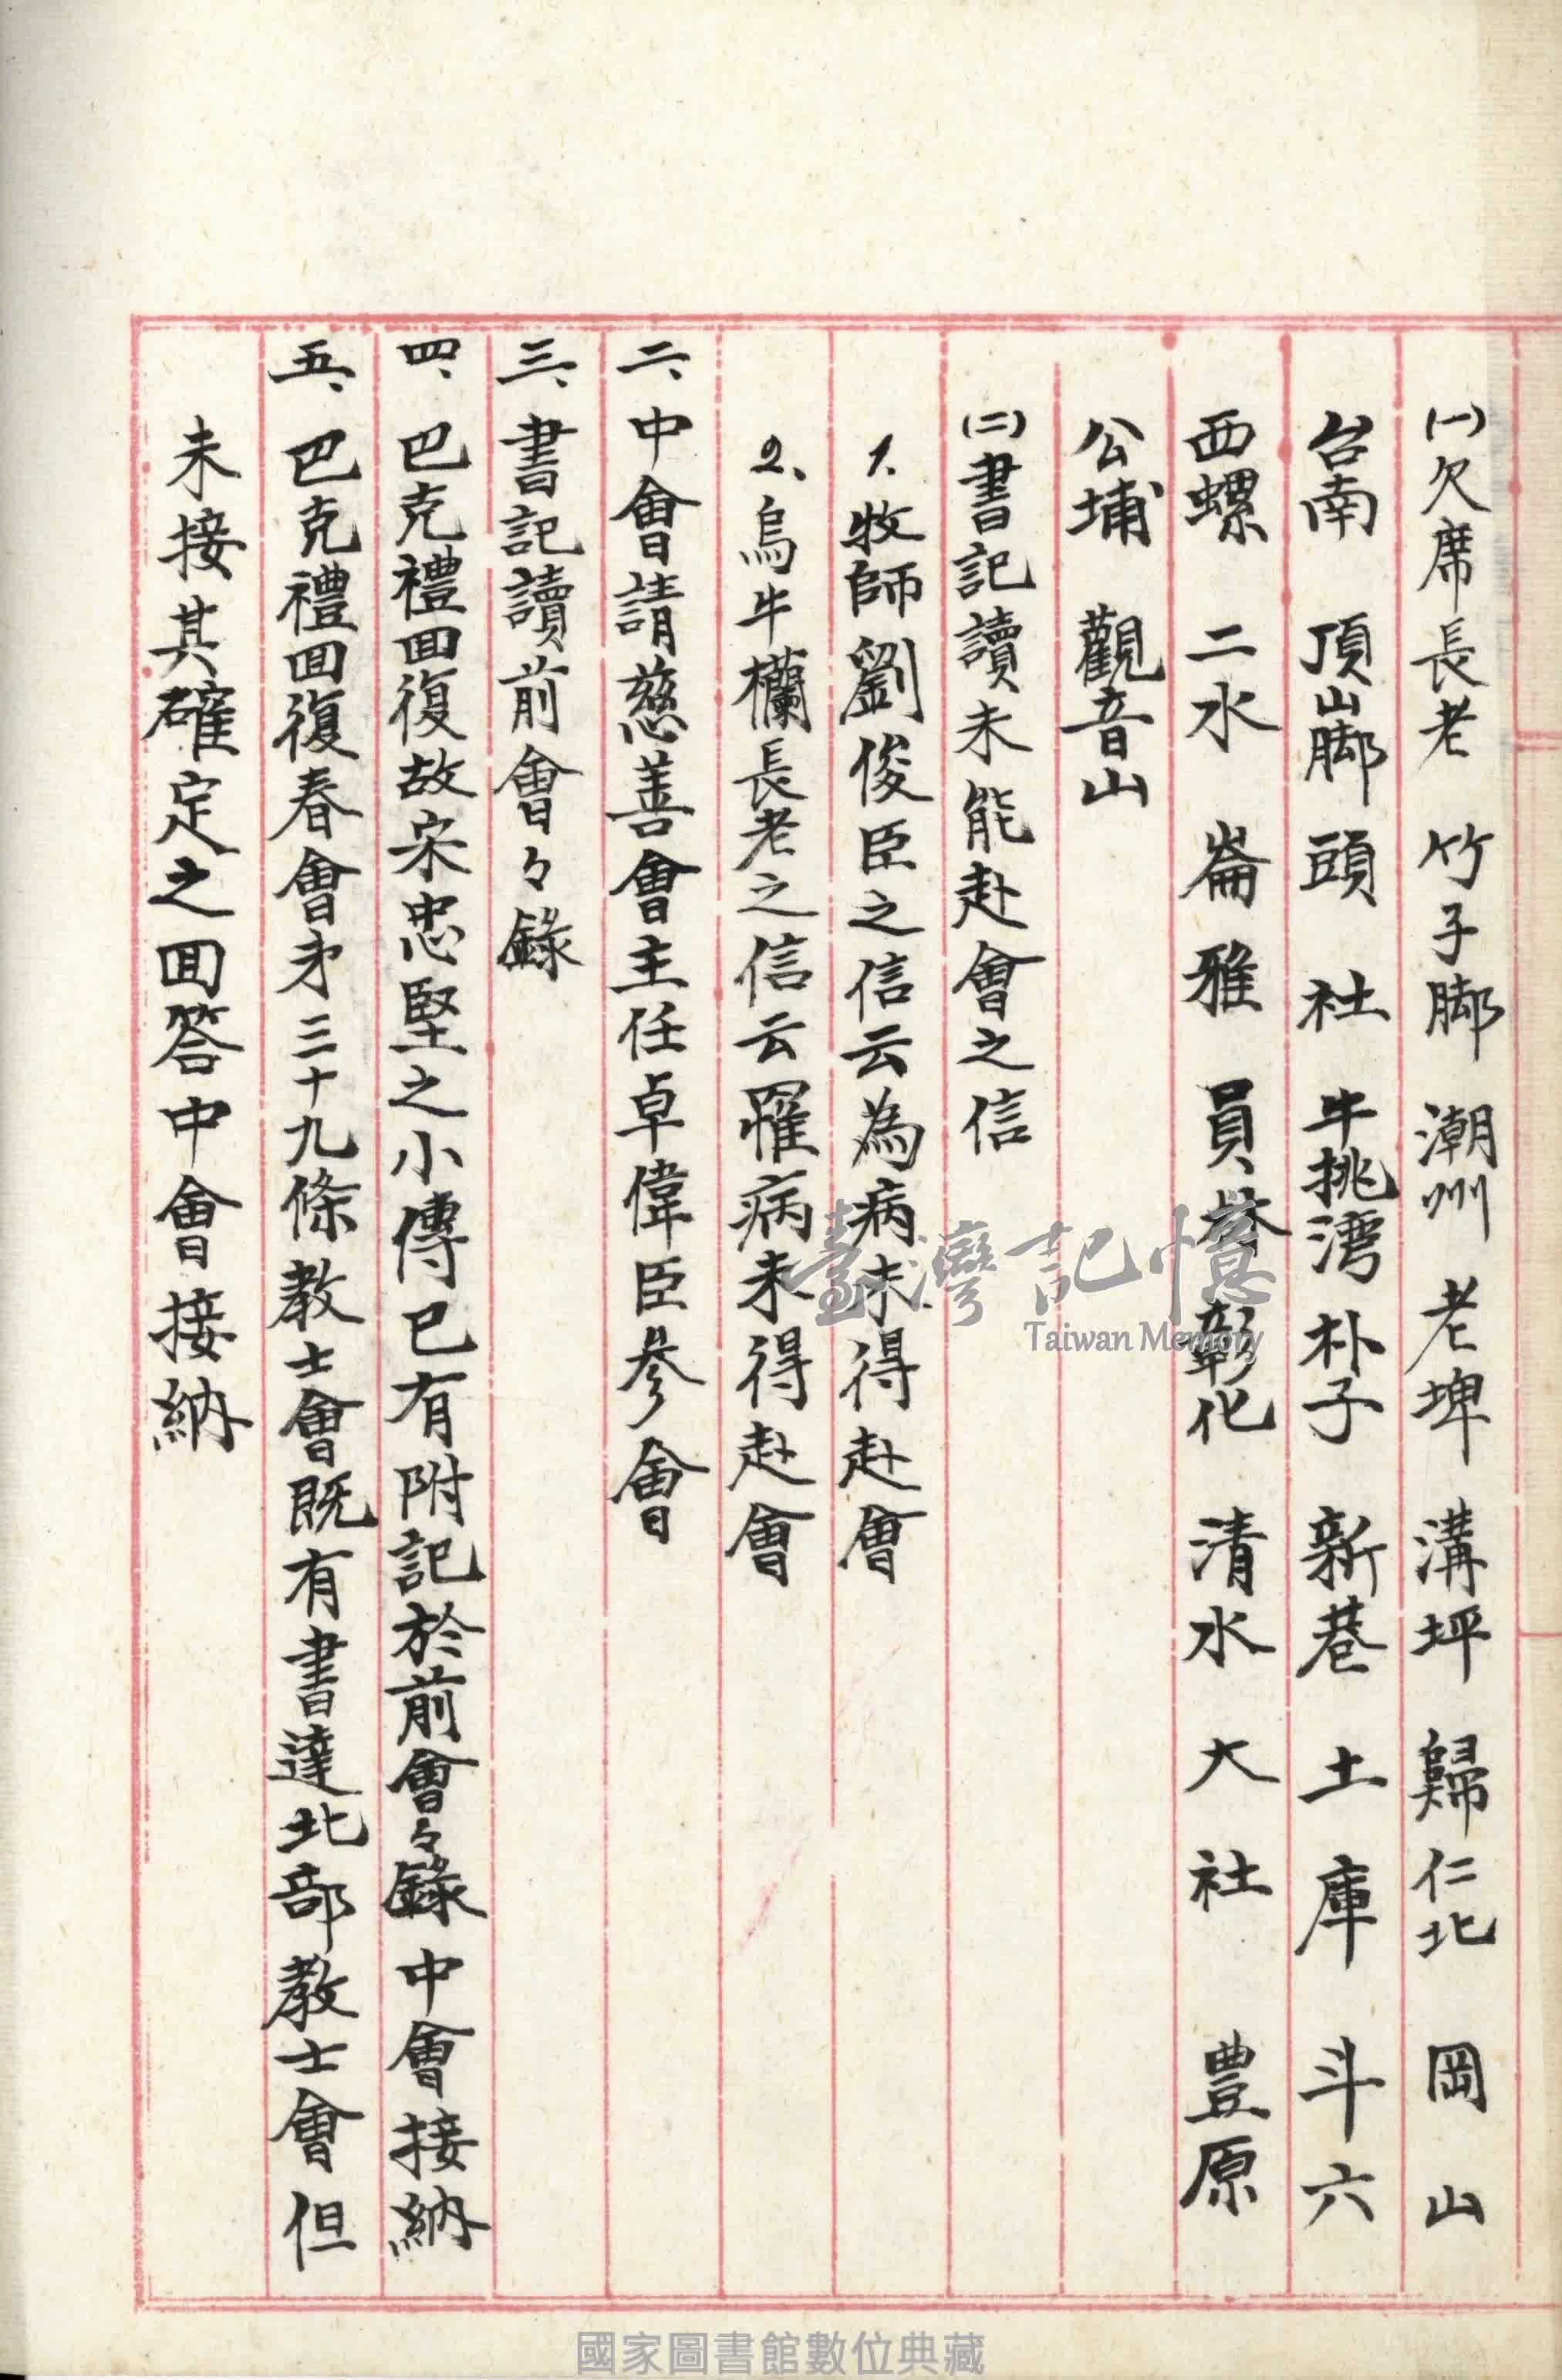 (一)欠席長老 竹子脚 潮州 老埤 溝坪 歸仁北 岡山
台南 頂山脚 頭社 牛挑湾 朴子 新巷 土庫 斗六
西螺 二水 崙雅 員林 彰化 清水 大社 豊原
公埔 觀音山
(二)書記讀未能赴會之信
1.牧師劉俊臣之信云為病未得赴會
2、烏牛欄長老之信云罹病未得赴會
二、中會請慈善會主任卓偉臣參會
三、書記讀前會々錄
四、巴克禮回復故宋忠堅之小傳已有附記於前會々錄中會接納
五、巴克禮回復春會才三十九條教士會既有書達北部教士會但
未接其確定之回答中會接納
臺灣記憶
Taiwan Memory
國家圖書館數位典藏